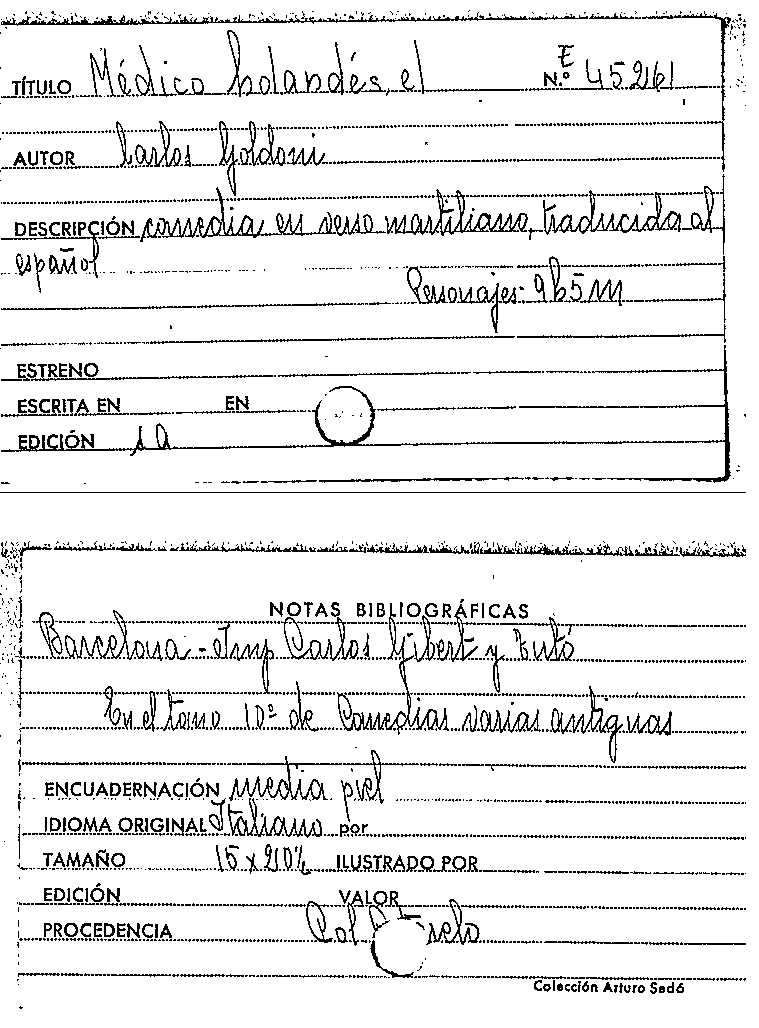 TÍTULO Médico holandés, el E N.º 45261
AUTOR Carlos Goldoni
DESCRIPCIÓN comedia en verso martiliano, traducida al
español
Personajes: 9h5m
ESTRENO
ESCRITA EN EN
EDICIÓN sa
NOTAS BIBLIOGRÁFICAS
Barcelona - Imp Carlos Gibert y Tutó
En el tomo 10º de Comedias varias antiguas
ENCUADERNACIÓN media piel
IDIOMA ORIGINAL Italiano por
TAMAÑO 15 x 20½ ILUSTRADO POR
EDICIÓN VALOR
PROCEDENCIA Col
Colección Arturo Sedó